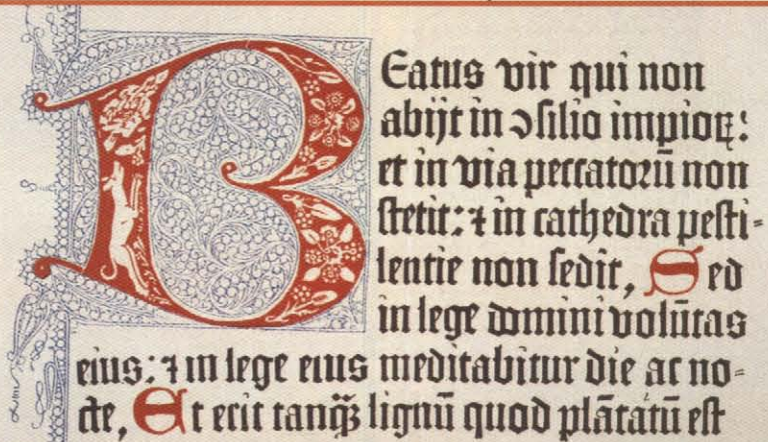 Beatus vir qui non
abijt in ↄsilio impioꝝ:
et in via peccatorū non
stetit: ⁊ in cathedra pesti-
lentie non sedit, Sed
in lege domini volūtas
eius: ⁊ in lege eius meditabitur die ac no-
cte, Et erit tanqꝫ lignū quod plātatū est